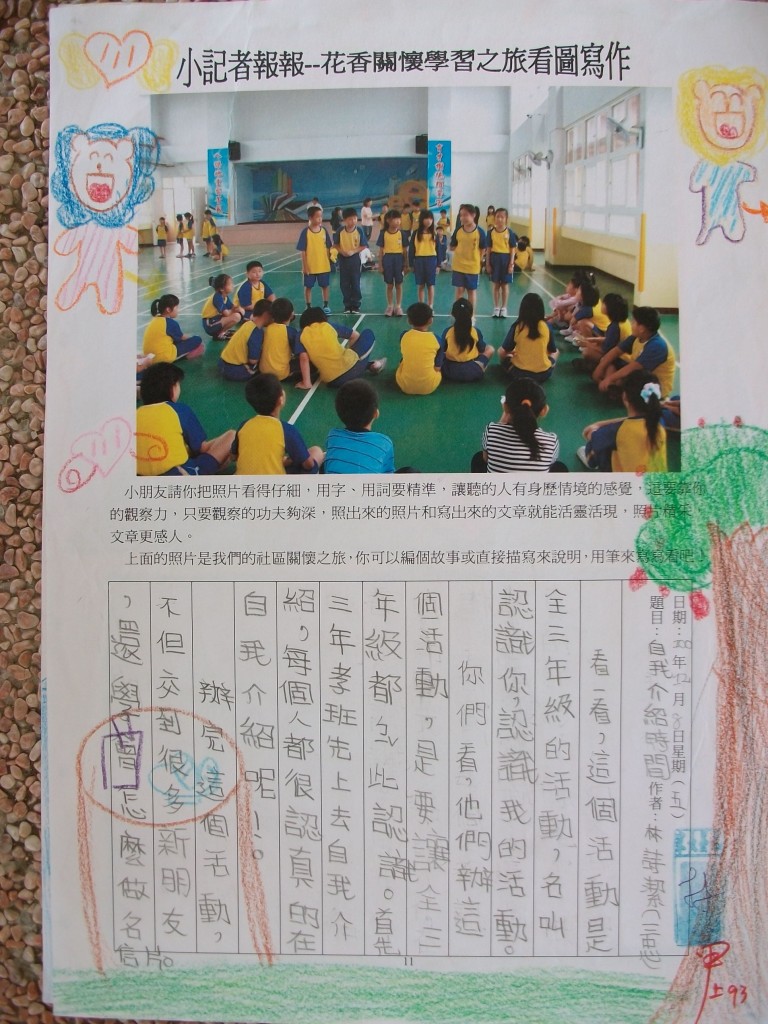 小記者報報--花香關懷學習之旅看圖寫作
小朋友請你把照片看得仔細，用字、用詞要精準，讓聽的人有身歷情境的感覺，這要靠你
的觀察力，只要觀察的功夫夠深，照出來的照片和寫出來的文章就能活靈活現，照片
文章更感人。
上面的照片是我們的社區關懷之旅，你可以編個故事或直接描寫來說明，用筆來寫寫看吧
日期：100年12月 日星期(五)
題目：自我介紹時間 作者：林詩潔(三忠)
看一看，這個活動是
全三年級的活動，名叫
認識你，認識我的活動。
你們看，他們辦這
個活動，是要讓全三
年級都彼此認識。首先
三年孝班先上去自我介
紹，每個人都很認真的在
自我介紹呢！。
辦完這個活動，
不但交到很多新朋友
，還學習怎麼做名信片。
甲上93